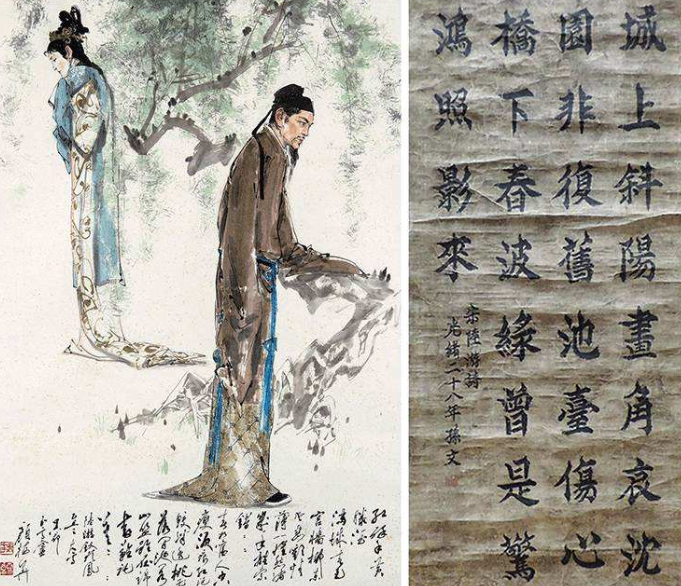 紅酥手黃
縢酒
滿城春色
宮牆柳東
風惡歡情
薄一懷愁緒
幾年離索
錯
春如舊人空
瘦淚痕紅浥
鮫綃透桃
花落閑池閣
山盟雖在錦
書難託
莫
陸游釵頭鳳
城上斜陽畫角哀沈
園非復舊池臺傷心
橋下春波綠曾是驚
鴻照影來
宋陸游詩
光緒二十八年孫文